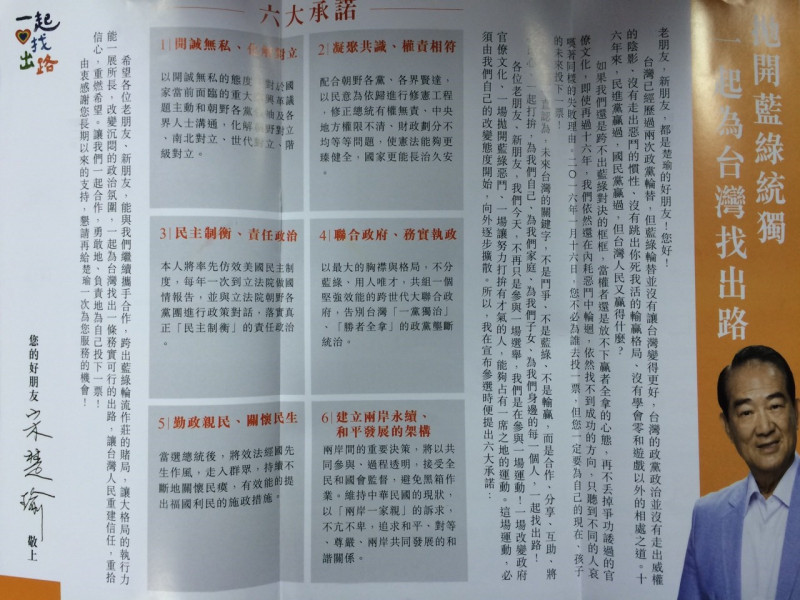 拋開藍綠統獨
一起為台灣找出路
老朋友、新朋友,都是楚瑜的好朋友!您好!
台灣已經歷過兩次政黨輪替,但藍綠輪替並沒有讓台灣變得更好,台灣的政黨政治並沒有走出威權
的陰影、沒有走出惡鬥的慣性、沒有跳出你死我活的輸贏格局、沒有學會零和遊戲以外的相處之道。十
六年來,民進黨贏過,國民黨贏過,但台灣人民又贏得什麼?
如果我們還是跨不出藍綠對決的框框,當權者還是放不下贏者全拿的心態,再不丟掉爭功諉過的官
僚文化,即使再過十六年,我們依然還在內耗惡鬥中輪迴,依然找不到成功的方向,只聽到不同的人哀
嘆著同樣的失敗理由。二○一六年一月十六日,您不必為誰去投一票,但您一定要為自己的現在、孩子
的未來投下一票!
認為,未來台灣的關鍵字,不是鬥爭、不是藍綠、不是輸贏,而是合作、分享、互助,將
一起打拚,為我們自己、為我們家庭、為我們子女、為我們身邊的每一個人,一起找出路!
各位老朋友、新朋友,我們今天,不再只是參與一場選舉,我們是在參與一場運動!一場改變政府
官僚文化、一場拋開藍綠惡鬥、一場讓努力打拚有才氣的人,能夠占有一席之地的運動。這場運動,必
須由我們自己的改變態度開始,向外逐步擴散。所以,我在宣布參選時便提出六大承諾:
六大承諾
1|開誠無私、化解對立
以開誠無私的態度,對於國
家當前面臨的重大興革議
題主動和朝野各黨及各
界人士溝通,化解朝野對立
、南北對立、世代對立、階
級對立。
2|凝聚共識、權責相符
配合朝野各黨、各界賢達,
以民意為依歸進行修憲工程
,修正總統有權無責、中央
地方權限不清、財政劃分不
均等等問題,使憲法能夠更
臻健全,國家更能長治久安
。
3|民主制衡、責任政治
本人將率先仿效美國民主制
度,每年一次到立法院做國
情報告,並向立法院朝野各
黨團進行政策對話,落實真
正「民主制衡」的責任政治
4|聯合政府、務實執政
以最大的胸襟與格局,不分
藍綠,用人唯才,共組一個
堅強效能的跨世代大聯合政
府,告別台灣「一黨獨治」
、「勝者全拿」的政黨壟斷
統治。
5|勤政親民、關懷民生
當選總統後,將效法經國先
生作風,走入群眾,持續不
斷地關懷民瘼,有效能的提
出福國利民的施政措施。
6|建立兩岸永續、
和平發展的架構
兩岸間的重要決策,將以共
同參與、過程透明,接受全
民和國會監督,避免黑箱作
業。維持中華民國的現狀,
以「兩岸一家親」的訴求,
不亢不卑,追求和平、對等
、尊嚴、兩岸共同發展的和
諧關係。
希望各位老朋友、新朋友,能與我們繼續攜手合作,跨出藍綠輪流作莊的賭局,讓大格局的執行力
能一展所長,改變沉悶的政治氛圍,一起為台灣找出一條務實可行的出路,讓台灣人民重建信任,重拾
信心,重燃希望。讓我們一起合作,勇敢地、負責地為自己投下一票!
由衷感謝您長期以來的支持,懇請再給楚瑜一次為您服務的機會!
您的好朋友 宋楚瑜 敬上
一起
找
出路